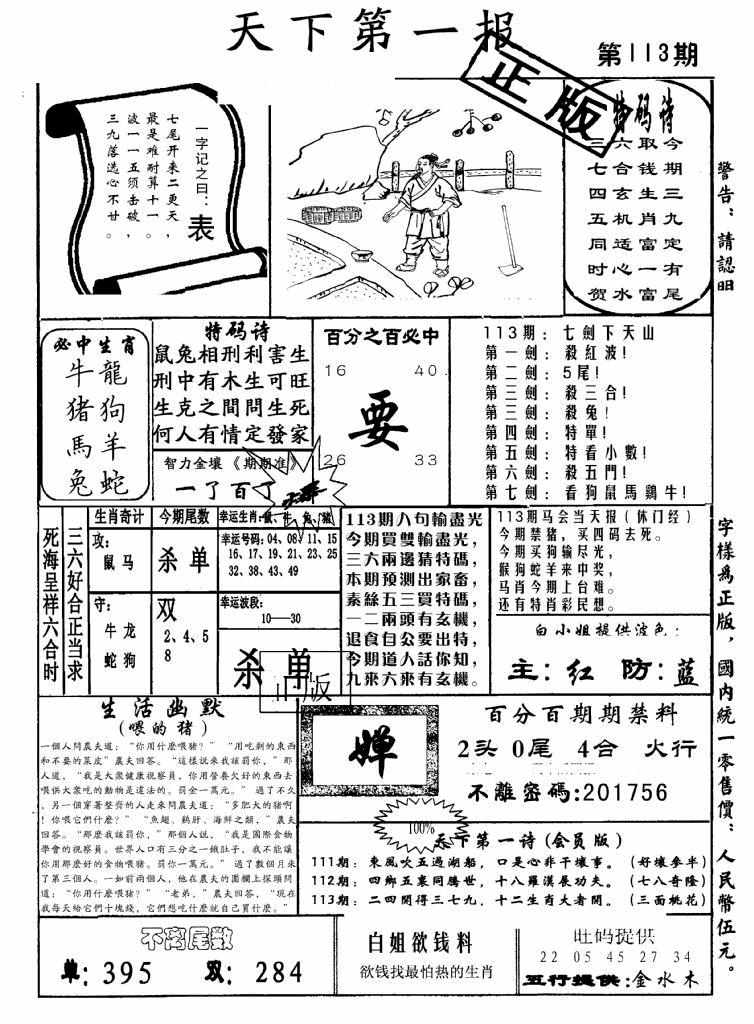 天下第一报
第113期
正版
一字记之曰：表
七尾开来二更天，
最是难耐算十一。
波一一五须击破，
三九落选心不甘。
特码诗
三六取今
七合钱期
四玄生三
五机肖九
同适富定
时心一有
贺水富尾
警告：請認明
字樣為正版，國内統一零售價：人民幣伍元。
必中生肖
牛龍
猪狗
馬羊
兔蛇
特码诗
鼠兔相刑利害生
刑中有木生可旺
生克之間問生死
何人有情定發家
智力金壤《期期准》
一了百了
百分之百必中
16 40.
要
26 33
113期：七劍下天山
第一劍：殺紅波！
第二劍：5尾！
第三劍：殺三合！
第三劍：殺兔！
第四劍：特單！
第五劍：特看小數！
第六劍：殺五門！
第七劍：看狗鼠馬鷄牛！
死海呈样六合时
三六好合正当求
生肖奇计
攻：
鼠马
守：
牛龙
蛇狗
今期尾数
杀单
双
2、4、5
8
幸运生肖：鼠、牛、兔、猪
幸运号码：04、08、11、15
16、17、19、21、23、25
32、38、43、49
幸运波段：
10—30
杀单
正版
113期八句輸盡光
今期買雙輸盡光，
三六兩邊猜特碼，
本期預測出家畜，
素絲五三買特碼，
一二兩頭有玄機，
退食自公要出特，
今期道人話你知，
九來六來有玄機。
113期马会当天报（休门经）
今期禁猪，买四码去死。
今期买狗输尽光，
猴狗蛇羊来中奖，
马肖今期上台难。
还有特肖彩民想。
白小姐提供波色：
主：红 防：蓝
生活幽默
（喂的猪）
一個人問農夫道：“你用什麽喂猪？”“用吃剩的東西
和不要的菜皮”農夫回答。“這樣説來我該罰你，”那
人道，“我是大衆健康視察員，你用營養欠好的東西去
喂供大衆吃的動物是違法的。罰金一萬元。”過了不久
，另一個穿著整齊的人走來問農夫道：“多肥大的猪啊
！你喂它們什麽？”“魚翅、鷄肝、海鮮之類，”農夫
回答。“那麽我該罰你，”那個人説，“我是國際食物
學會的視察員。世界人口有三分之一餓肚子，我不能讓
你用那麽好的食物喂猪。罰你一萬元。”過了數個月來
了第三個人。一如前兩個人，他在農夫的圍欄上探頭問
道：“你用什麽喂猪？”“老弟，”農夫回答，“現在
我每天給它們十塊錢，它們想吃什麽就自己買什麽。”
婵
百分百期期禁料
2头 0尾 4合 火行
不離密碼：201756
100%
天下第一诗（会员版）
111期：東風吹五過湖船，口是心非干壞事。（好壞參半）
112期：四鄉五裏同騰世，十八羅漢展功夫。（七八奇隆）
113期：二四開得三七九，十二生肖大者開。（三面桃花）
不离尾数
单：395 双：284
白姐欲钱料
欲钱找最怕热的生肖
旺码提供
22 05 45 27 34
五行提供：金水木